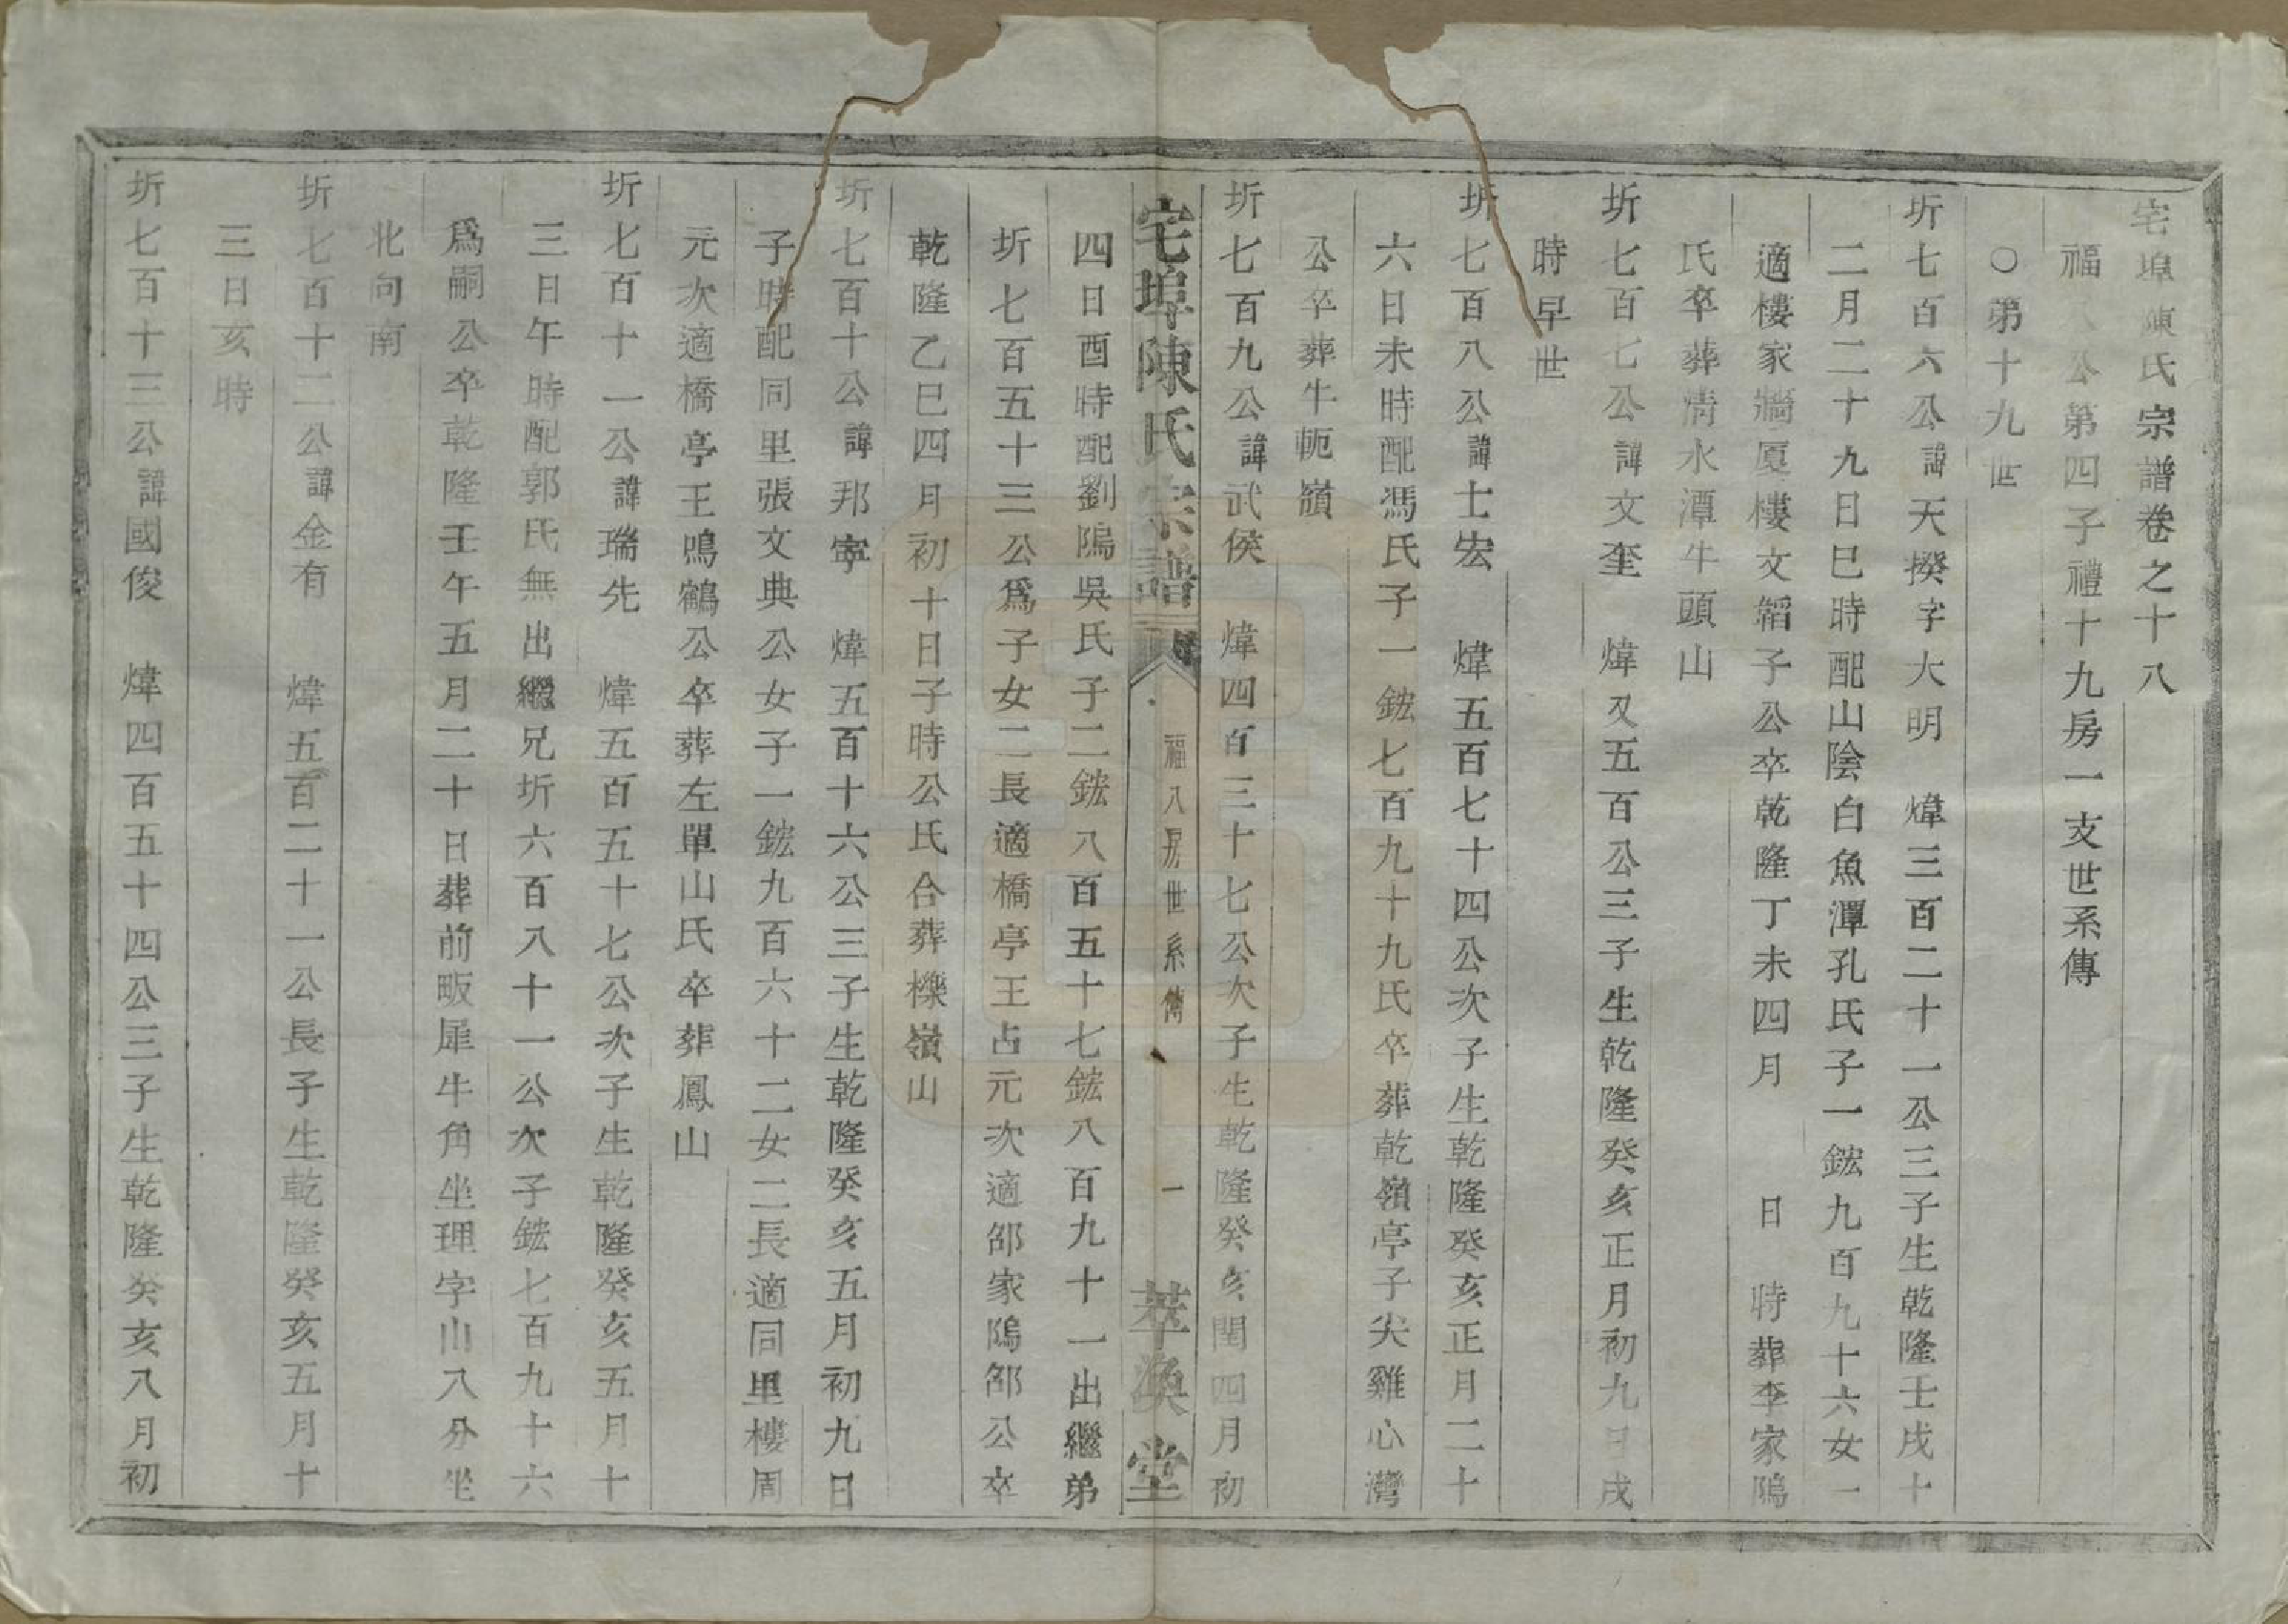 宅埠陳氏宗譜卷之十八
福八公第四子禮十九房一支世系傳
○第十九世
圻七百六公諱天揆字大明　煒三百二十一公三子生乾隆壬戌十
二月二十九日巳時配山陰白魚潭孔氏子一鋐九百九十六女一
適樓家牆厦樓文韜子公卒乾隆丁未四月　日　時葬李家隖
氏卒葬清水潭牛頭山
圻七百七公諱文奎　煒又五百公三子生乾隆癸亥正月初九日戌
時早世
圻七百八公諱士宏　煒五百七十四公次子生乾隆癸亥正月二十
六日未時配馮氏子一鋐七百九十九氏卒葬乾嶺亭子尖雞心灣
公卒葬牛軛嶺
圻七百九公諱武侯　煒四百三十七公次子生乾隆癸亥閏四月初
宅埠陳氏宗譜
福八房世系傳
一
萃渙堂
四日酉時配劉隖吳氏子二鋐八百五十七鋐八百九十一出繼弟
圻七百五十三公爲子女二長適橋亭王占元次適邵家隖邵公卒
乾隆乙巳四月初十日子時公氏合葬櫟嶺山
圻七百十公諱邦寧　煒五百十六公三子生乾隆癸亥五月初九日
子時配同里張文典公女子一鋐九百六十二女二長適同里樓周
元次適橋亭王鳴鶴公卒葬左單山氏卒葬鳳山
圻七百十一公諱瑞先　煒五百五十七公次子生乾隆癸亥五月十
三日午時配郭氏無出繼兄圻六百八十一公次子鋐七百九十六
爲嗣公卒乾隆壬午五月二十日葬前畈犀牛角坐理字山八分坐
北向南
圻七百十二公諱金有　煒五百二十一公長子生乾隆癸亥五月十
三日亥時
圻七百十三公諱國俊　煒四百五十四公三子生乾隆癸亥八月初